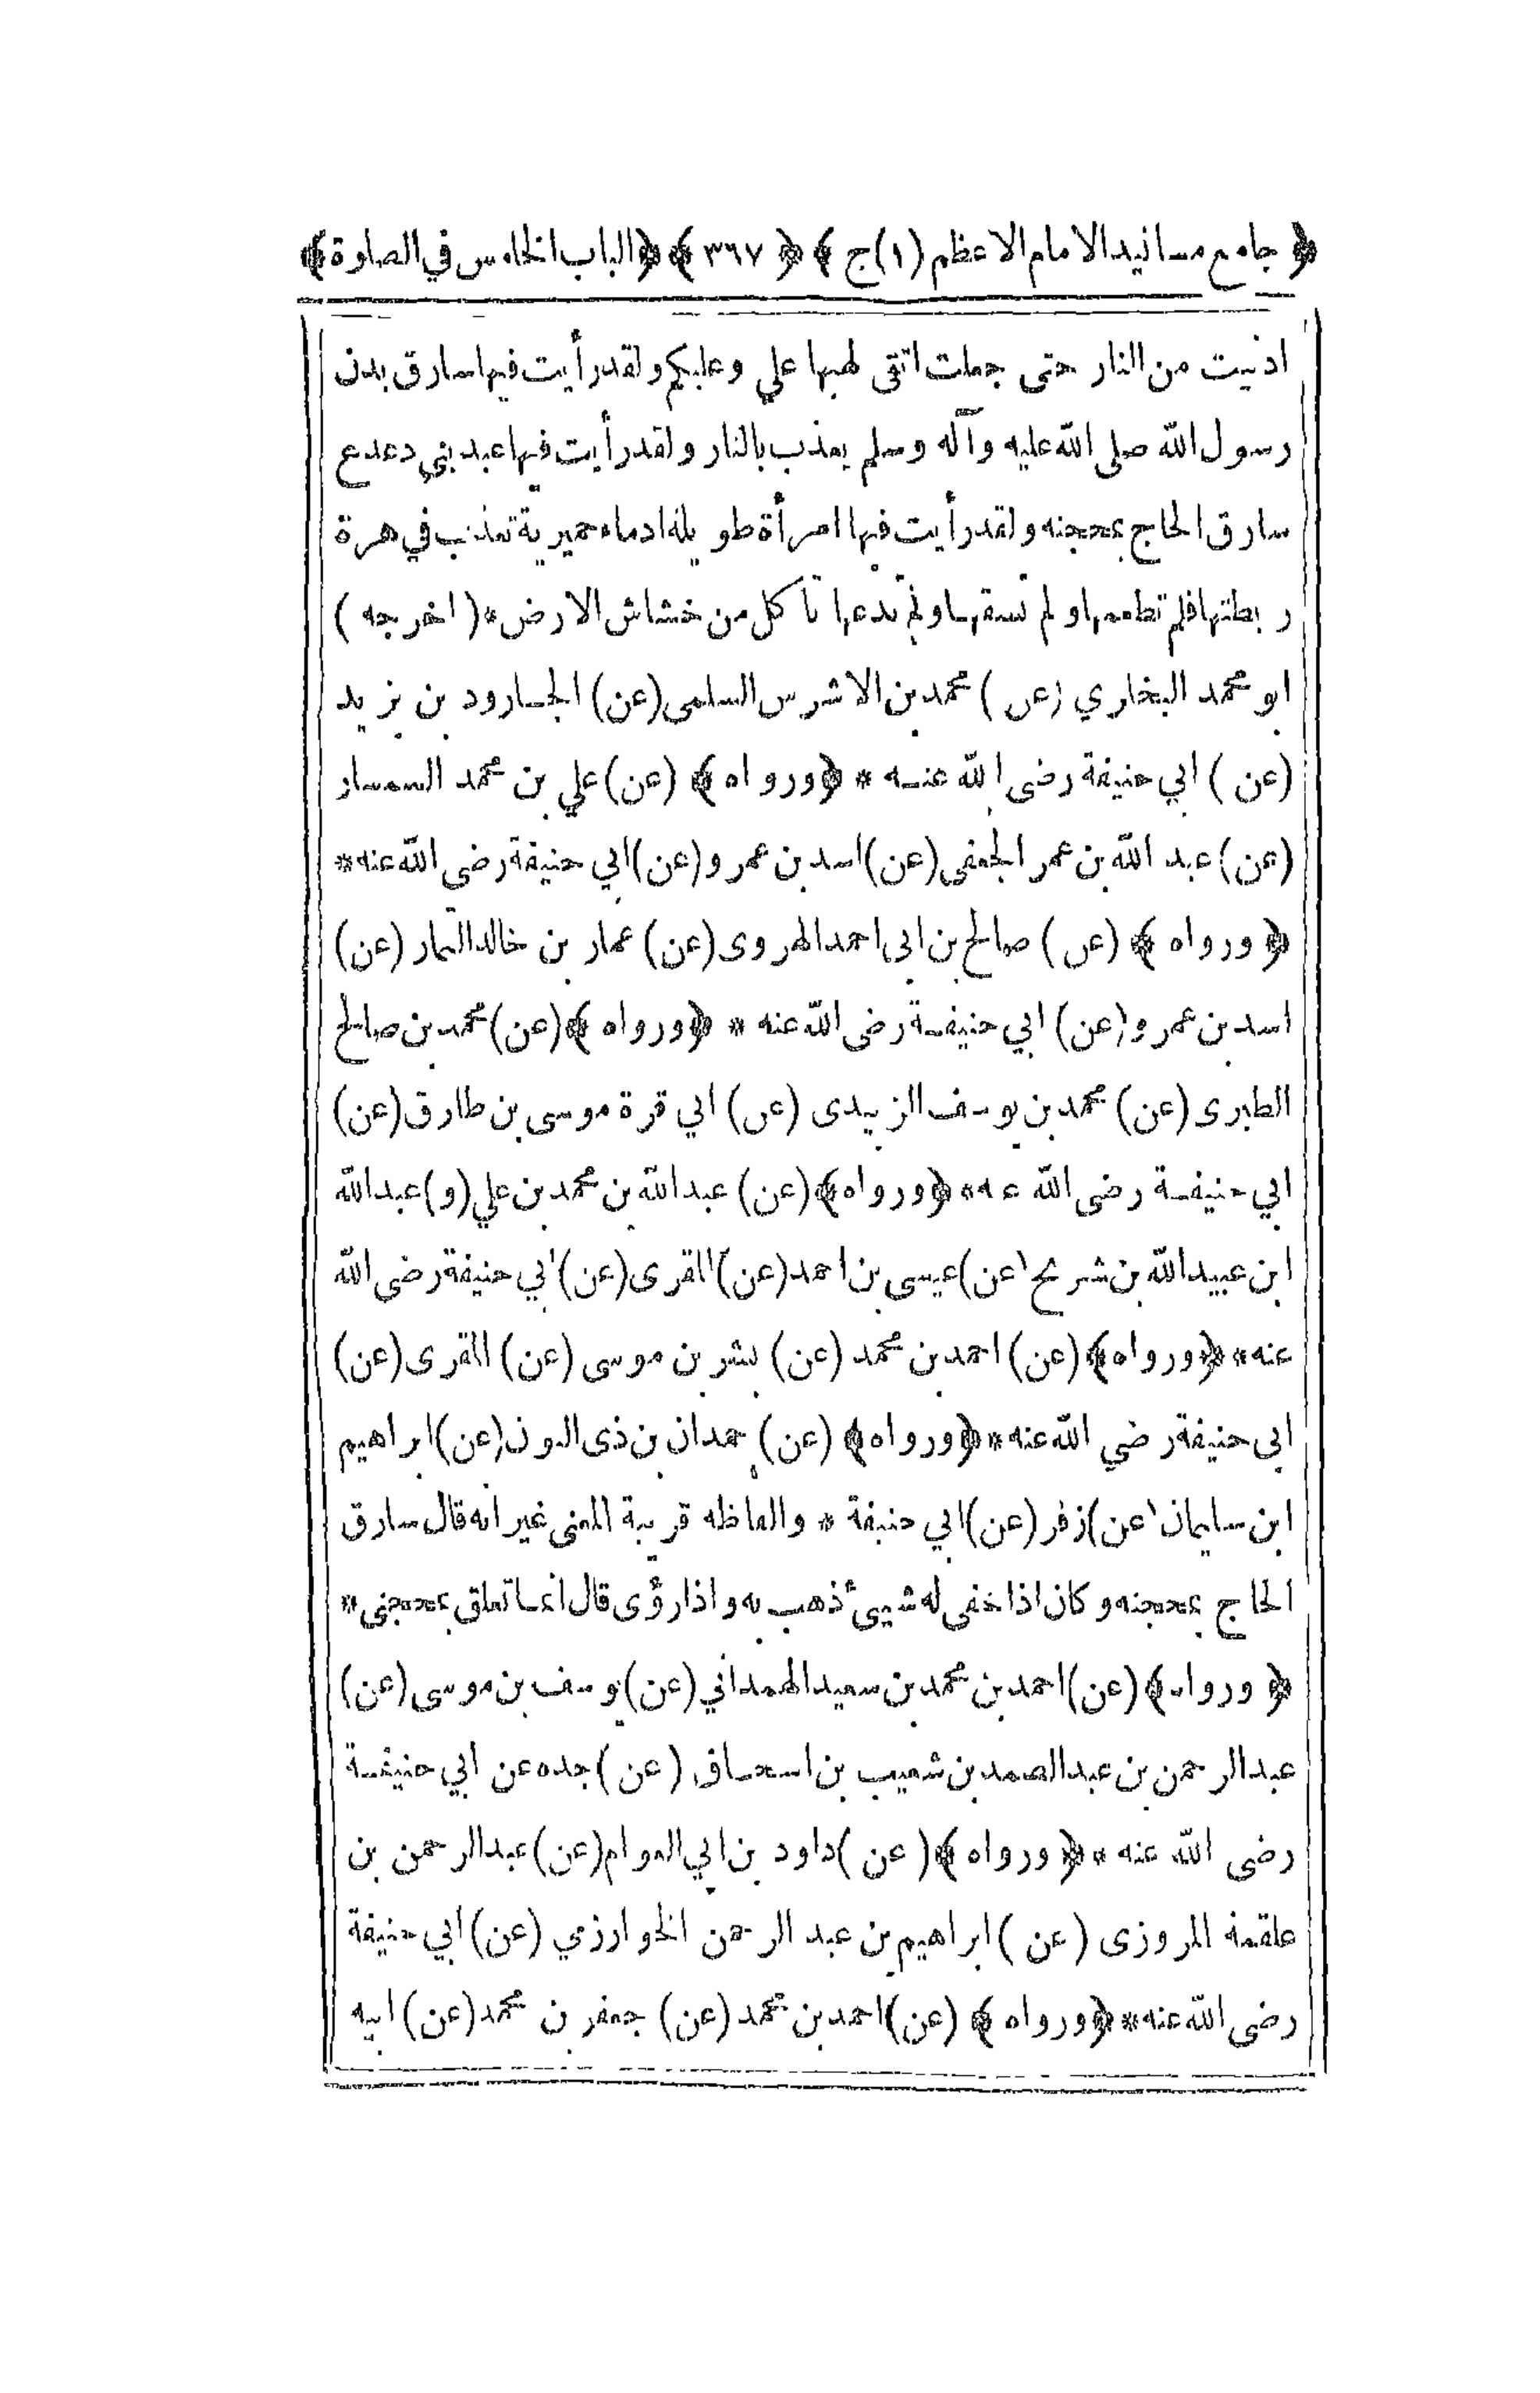 ﴿ جامع مسانيد الامام الاعظم (١) ج ﴾ ﴿ ٣٦٧ ﴾ ﴿الباب الخامس في الصلوة﴾
ادنيت من النار حتى جعلت اتقى لهبها علي وعليكم ولقد رأيت فيها سارق بدن
رسول الله صلى الله عليه وآله وسلم يعذب بالنار ولقد رأيت فيها عبد بني دعدع
سارق الحاج بمحجنه ولقد رأيت فيها امرأة طويلة ادماء حميرية تعذب في هرة
ربطتها فلم تطعمها ولم تسقها ولم تدعها تأكل من خشاش الارض * ( اخرجه )
ابو محمد البخاري (عن ) محمد بن الاشرس السلمى (عن) الجارود بن يزيد
(عن ) ابي حنيفة رضى الله عنه * ﴿ورواه ﴾ (عن) علي بن محمد السمسار
(عن) عبد الله بن عمر الجعفى (عن) اسد بن عمرو (عن) ابي حنيفة رضى الله عنه *
﴿ ورواه ﴾ (عن ) صالح بن ابى احمد الهروى (عن) عمار بن خالد التمار (عن)
اسد بن عمرو (عن) ابي حنيفة رضى الله عنه * ﴿ورواه ﴾ (عن) محمد بن صالح
الطبرى (عن) محمد بن يوسف الزبيدى (عن) ابي قرة موسى بن طارق (عن)
ابي حنيفة رضى الله عنه * ﴿ورواه﴾ (عن) عبد الله بن محمد بن علي (و) عبد الله
ابن عبيد الله بن شريح (عن) عيسى بن احمد (عن) المقرى (عن) ابي حنيفة رضى الله
عنه * ﴿ورواه﴾ (عن) احمد بن محمد (عن) بشر بن موسى (عن) المقرى (عن)
ابى حنيفة رضي الله عنه * ﴿ورواه ﴾ (عن) حمدان بن ذى النون (عن) ابراهيم
ابن سليمان (عن) زفر (عن) ابي حنيفة * والفاظه قريبة المعنى غير انه قال سارق
الحاج بمحجنه وكان اذا خفى له شيئ ذهب به واذا رؤى قال انما تعلق بمحجنى *
﴿ ورواه ﴾ (عن) احمد بن محمد بن سعيد الهمداني (عن) يوسف بن موسى (عن)
عبد الرحمن بن عبد الصمد بن شعيب بن اسحاق (عن ) جده عن ابي حنيفة
رضى الله عنه * ﴿ورواه ﴾ (عن ) داود بن ابي العوام (عن) عبد الرحمن بن
علقمة المروزى (عن ) ابراهيم بن عبد الرحمن الخوارزمي (عن) ابي حنيفة
رضى الله عنه * ﴿ورواه ﴾ (عن) احمد بن محمد (عن) جعفر بن محمد (عن) ابيه